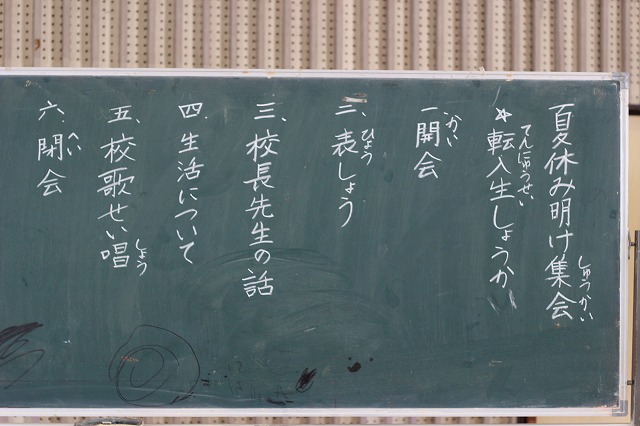 夏休み明け集会
しゅうかい
☆転入生しょうか
てんにゅうせい
一開会
かい
二、表しょう
ひょう
三、校長先生の話
四、生活について
五、校歌せい唱
しょう
六、閉会
へい